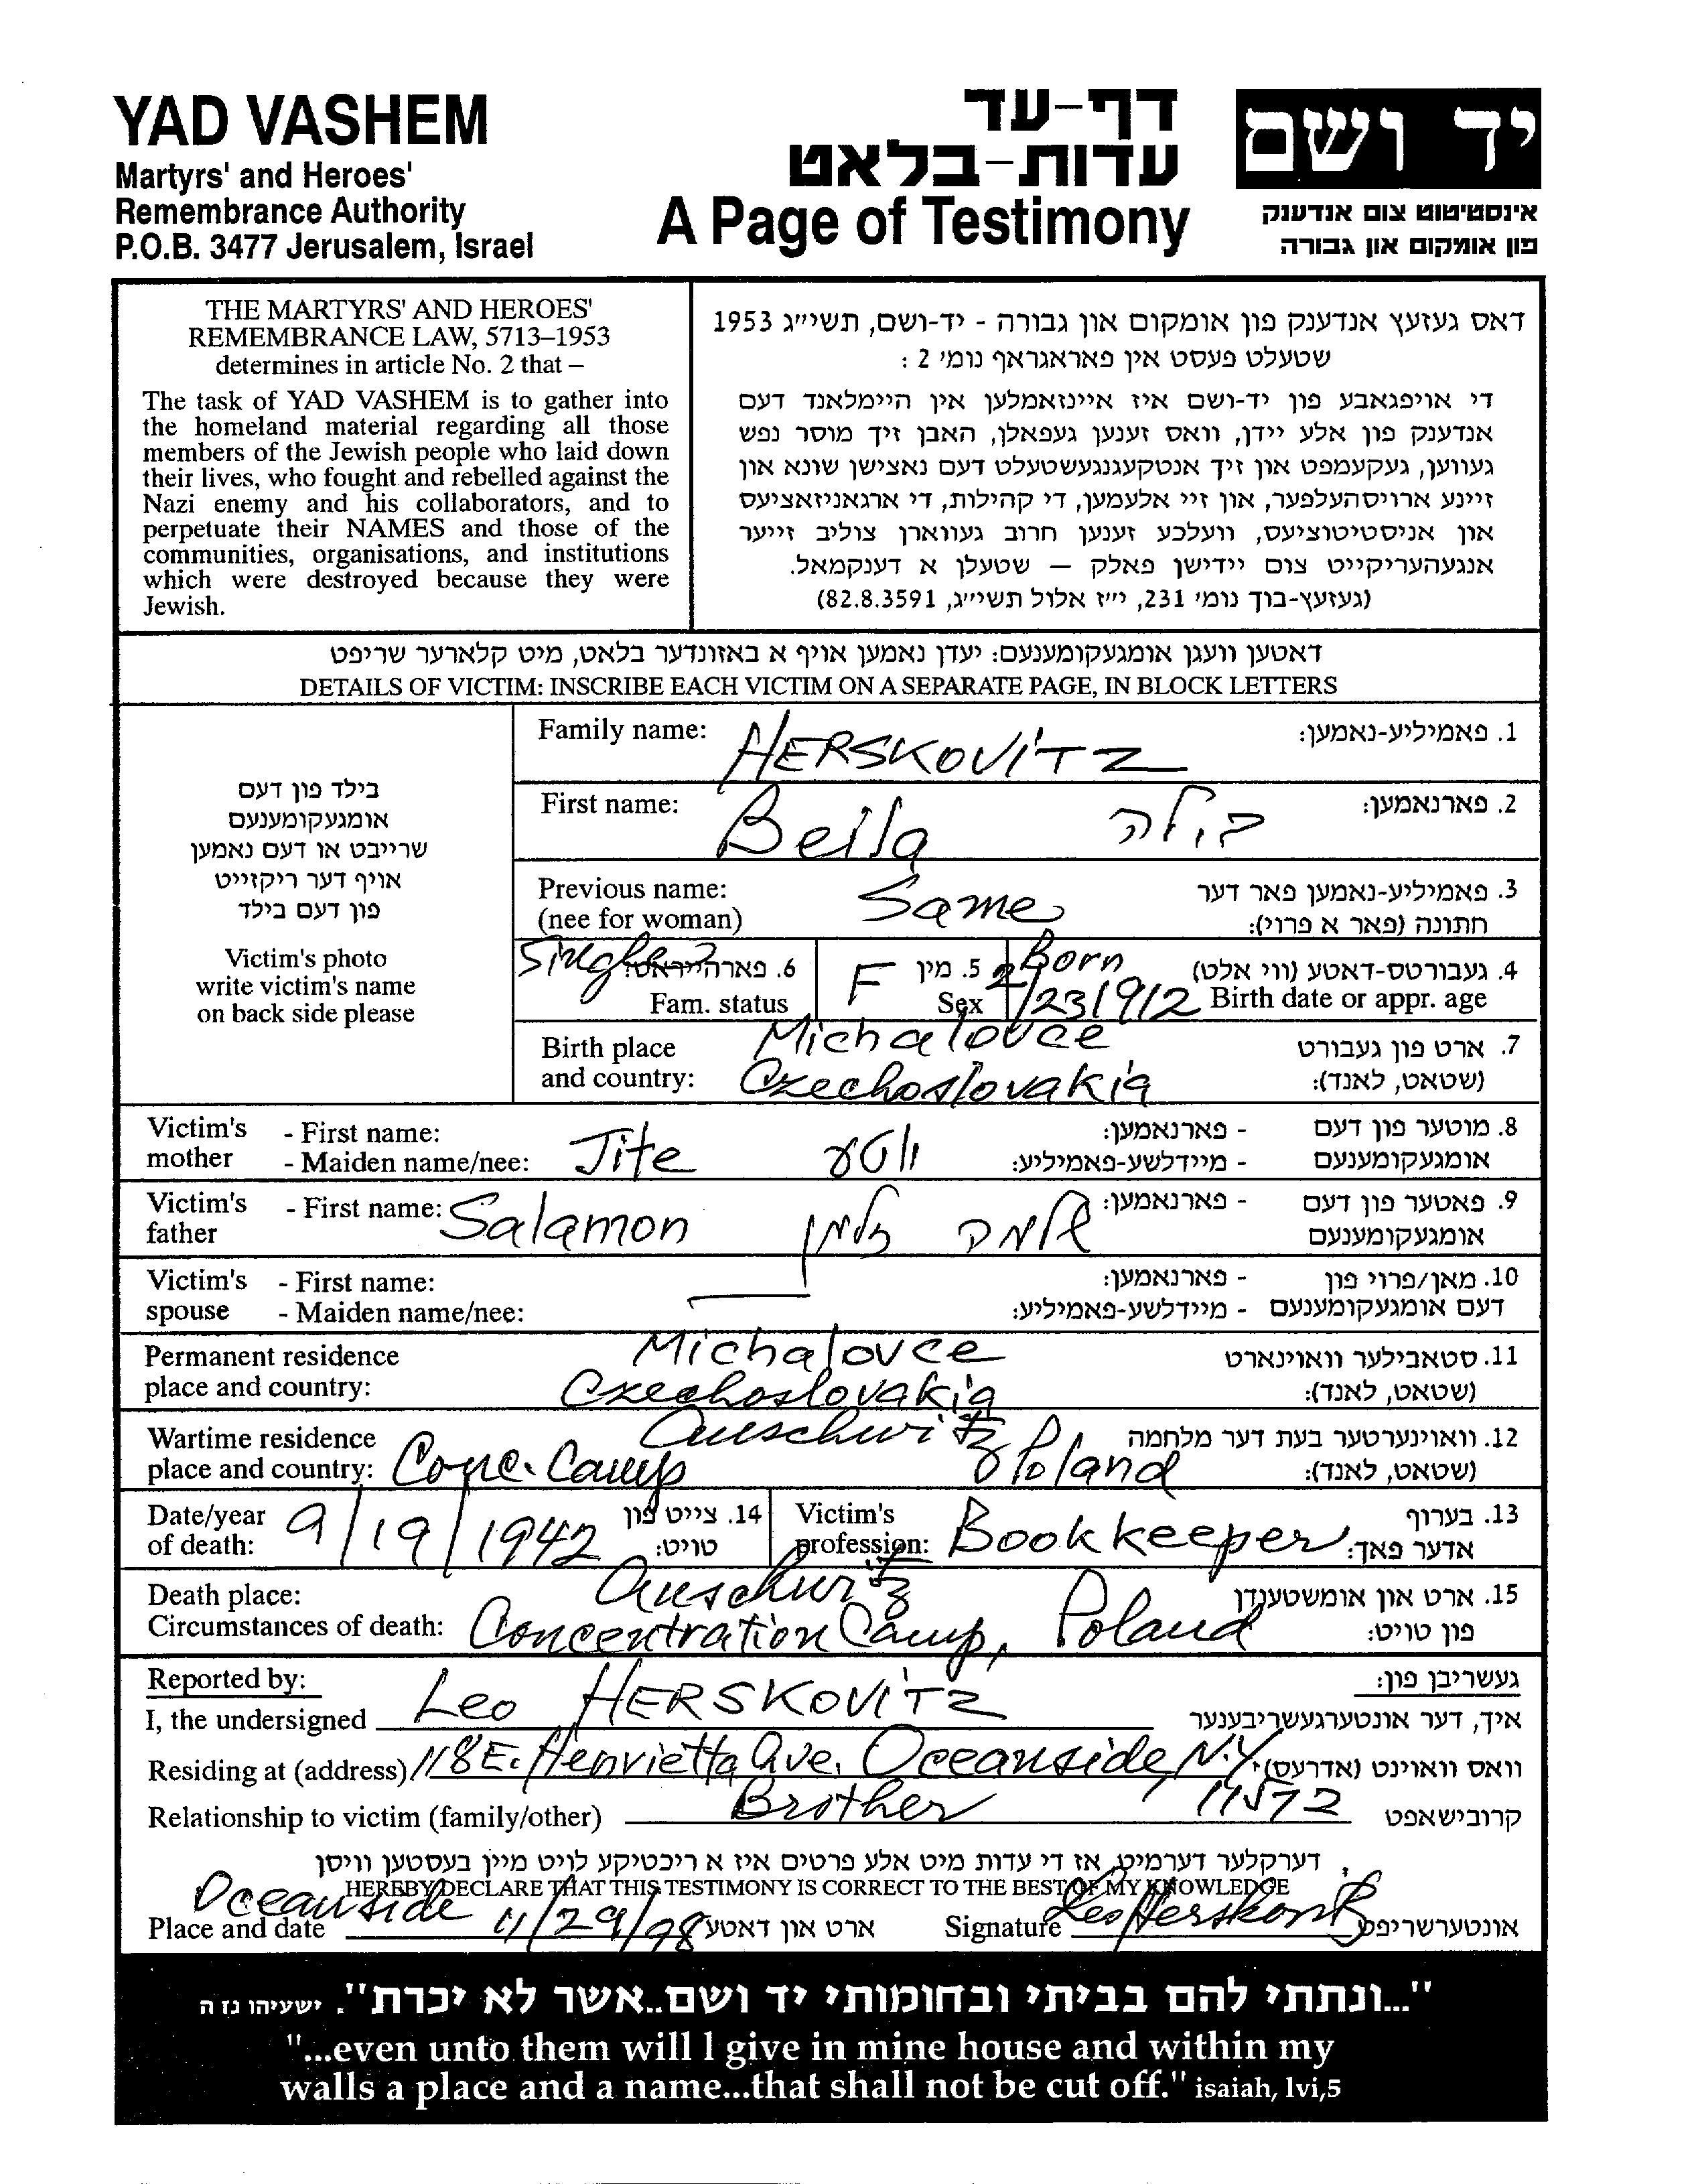 YAD VASHEM
Martyrs' and Heroes'
Remembrance Authority
P.O.B. 3477 Jerusalem, Israel
דף-עד
עדות-בלאט
A Page of Testimony
יד ושם
אינסטיטוט צום אנדענק
פון אומקום און גבורה
THE MARTYRS' AND HEROES'
REMEMBRANCE LAW, 5713–1953
determines in article No. 2 that –
The task of YAD VASHEM is to gather into
the homeland material regarding all those
members of the Jewish people who laid down
their lives, who fought and rebelled against the
Nazi enemy and his collaborators, and to
perpetuate their NAMES and those of the
communities, organisations, and institutions
which were destroyed because they were
Jewish.
דאס געזעץ אנדענק פון אומקום און גבורה - יד-ושם, תשי״ג 1953
שטעלט פעסט אין פאראגראף נומ׳ 2 :
די אויפגאבע פון יד-ושם איז איינזאמלען אין היימלאנד דעם
אנדענק פון אלע יידן, וואס זענען געפאלן, האבן זיך מוסר נפש
געווען, געקעמפט און זיך אנטקעגנגעשטעלט דעם נאצישן שונא און
זיינע ארויסהעלפער, און זיי אלעמען, די קהילות, די ארגאניזאציעס
און אניסטיטוציעס, וועלכע זענען חרוב געווארן צוליב זייער
אנגעהעריקייט צום יידישן פאלק — שטעלן א דענקמאל.
(געזעץ-בוך נומ׳ 231, י״ז אלול תשי״ג, 82.8.3591)
דאטען וועגן אומגעקומענעם: יעדן נאמען אויף א באזונדער בלאט, מיט קלארער שריפט
DETAILS OF VICTIM: INSCRIBE EACH VICTIM ON A SEPARATE PAGE, IN BLOCK LETTERS
בילד פון דעם
אומגעקומענעם
שרייבט או דעם נאמען
אויף דער ריקזייט
פון דעם בילד
Victim's photo
write victim's name
on back side please
Family name: HERSKOVITZ 1. פאמיליע-נאמען:
First name: Beila בילה 2. פארנאמען:
Previous name: Same 3. פאמיליע-נאמען פאר דער
(nee for woman) חתונה (פאר א פרוי):
Single 6. פארהייראט? F 5. מין Born 4. געבורטס-דאטע (ווי אלט)
Fam. status Sex 2/23/912 Birth date or appr. age
Birth place Michalovce 7. ארט פון געבורט
and country: Czechoslovakia (שטאט, לאנד):
Victim's - First name: - פארנאמען: 8. מוטער פון דעם
mother - Maiden name/nee: Jite יוטע - מיידלשע-פאמיליע: אומגעקומענעם
Victim's - First name: Salamon שלמה זלמן - פארנאמען: 9. פאטער פון דעם
father אומגעקומענעם
Victim's - First name: - פארנאמען: 10. מאן/פרוי פון
spouse - Maiden name/nee: - מיידלשע-פאמיליע: דעם אומגעקומענעם
Permanent residence Michalovce 11. סטאבילער וואוינארט
place and country: Czechoslovakia (שטאט, לאנד):
Wartime residence Auschwitz 12. וואוינערטער בעת דער מלחמה
place and country: Conc. Camp Poland (שטאט, לאנד):
Date/year 9/19/1942 14. צייט פון Victim's Bookkeeper 13. בערוף
of death: טויט: profession: אדער פאך:
Death place: Auschwitz 15. ארט און אומשטענדן
Circumstances of death: Concentration Camp, Poland פון טויט:
Reported by: געשריבן פון:
I, the undersigned Leo HERSKOVITZ איך, דער אונטערגעשריבענער
Residing at (address) 118 E. Henrietta Ave. Oceanside, N.Y. וואס וואוינט (אדרעס)
Relationship to victim (family/other) Brother 11572 קרובישאפט
דערקלער דערמיט, אז די עדות מיט אלע פרטים איז א ריכטיקע לויט מיין בעסטען וויסן
HEREBY DECLARE THAT THIS TESTIMONY IS CORRECT TO THE BEST OF MY KNOWLEDGE
Place and date Oceanside 11/29/98 ארט און דאטע Signature Leo Herskovitz אונטערשריפט
"...ונתתי להם בביתי ובחומותי יד ושם..אשר לא יכרת". ישעיהו נז ה
"...even unto them will I give in mine house and within my
walls a place and a name...that shall not be cut off." isaiah, lvi,5